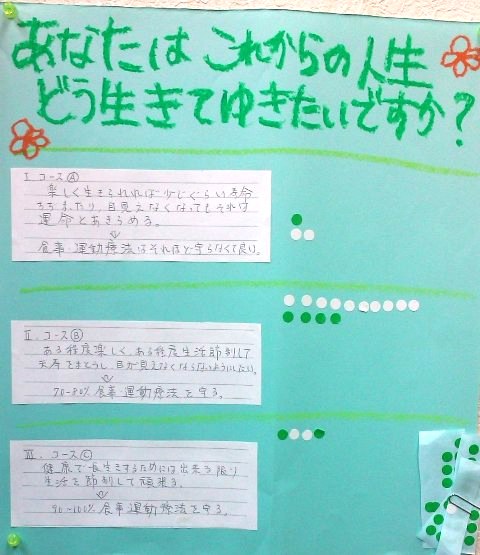 あなたは これからの人生
どう生きてゆきたいですか?
I. コースⒶ
楽しく生きられれば 少しぐらい寿命
ちぢまったり、目見えなくなってもそれは
運命とあきらめる。
⇩
食事 運動療法はそれほど守らなくて良い。
II. コースⒷ
ある程度楽しく、ある程度生活節制して
天寿をまっとうし、目が見えなくならないようにしたい。
⇩
70-80% 食事 運動療法を守る。
III. コースⒸ
健康で長生きするためには出来る限り
生活を節制して頑張る。
⇩
90-100% 食事 運動療法を守る。